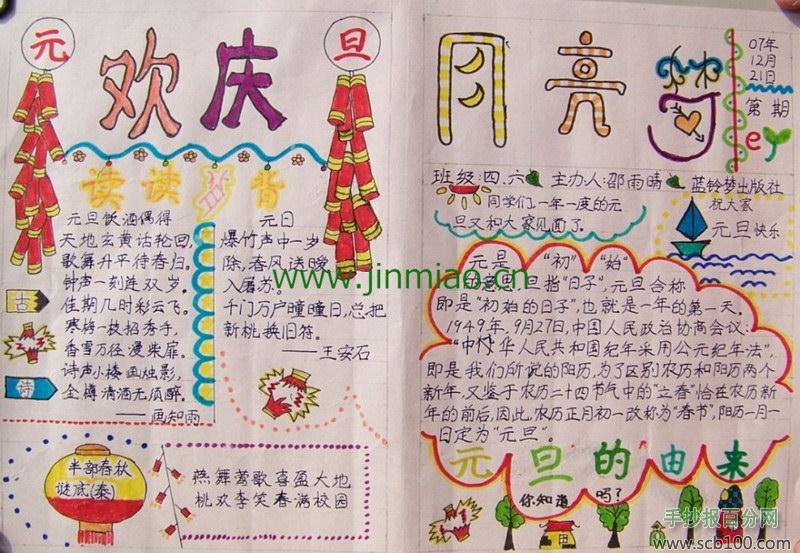 元
旦
欢庆
读读背背
元旦饮酒偶得
天地玄黄诂轮回,
歌舞升平待春归。
钟声一刻连双岁,
佳期几时彩云飞。
寒梅一枝招秀手,
香雪万径漫柴扉。
诗声小楼画烛影,
金樽清酒无须醉。
——画知雨
古
诗
元日
爆竹声中一岁
除,春风送暖
入屠苏。
千门万户曈曈日,总把
新桃换旧符。
——王安石
半部春秋
谜底(秦)
燕舞莺歌喜盈大地
桃欢李笑春满校园
月亮
07年
12月
21日
第 期
班级:四.六 主办人:邵雨晴 蓝铃梦出版社
同学们一年一度的元
旦又和大家见面了。
祝大家
元旦快乐
元是“初”“始”
旦指“日子”,元旦合称
即是“初始的日子”,也就是一年的第一天。
1949年,9月27日,中国人民政治协商会议:
“中华人民共和国纪年采用公元纪年法”,
即是我们所说的阳历,为了区别农历和阳历两个
新年,又鉴于农历二十四节气中的“立春”恰在农历新
年的前后,因此,农历正月初一改称为“春节”,阳历一月一
日定为“元旦”。
元旦的由来
你知道吗?
www.jinmiao.cn
手抄报百分网
www.scb100.com